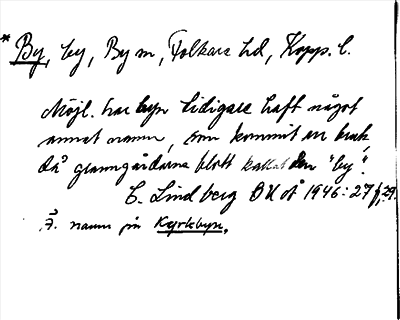 * By, by, By sn, Folkare hd, Kopp. l.
Möjl. har byn tidigare haft något
annat namn, som kommit ur bruk,
då granngårdarna blott kallat den "by".
C. Lindberg BU å 1946: 27 f, 29.
Ä. namn för Kyrkbyn.